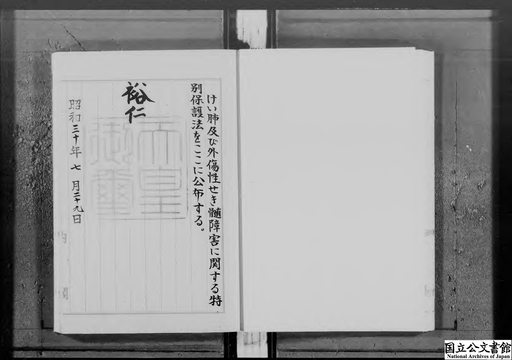 けい肺及び外傷性せき髄障害に関する特
別保護法をここに公布する。
裕仁
天皇
御璽
昭和三十年七月二十九日
国立公文書館
National Archives of Japan